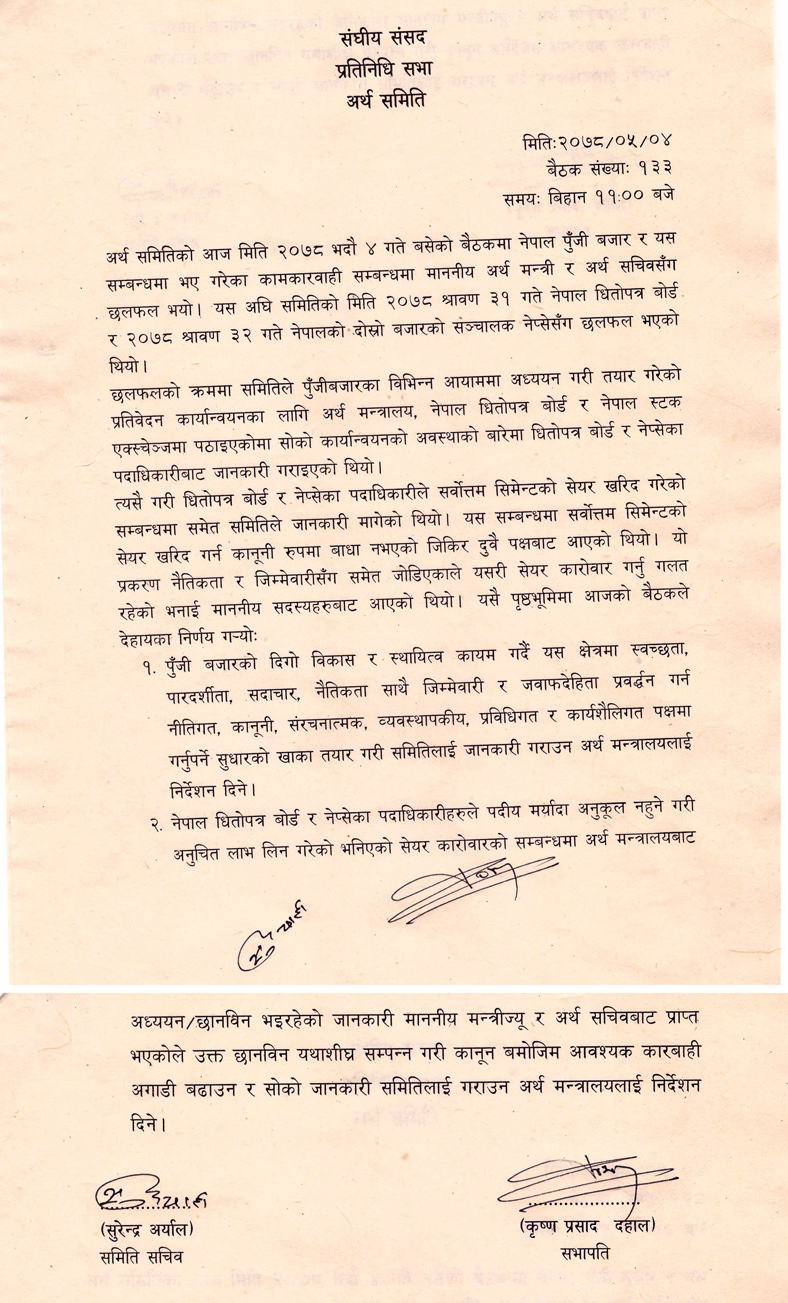 संघीय संसद
प्रतिनिधि सभा
अर्थ समिति
मिति:२०७८/०५/०४
बैठक संख्याः १३३
समयः बिहान ११:०० बजे
अर्थ समितिको आज मिति २०७८ भदौ ४ गते बसेको बैठकमा नेपाल पुँजी बजार र यस
सम्बन्धमा भए गरेका कामकारवाही सम्बन्धमा माननीय अर्थ मन्त्री र अर्थ सचिवसँग
छलफल भयो। यस अघि समितिको मिति २०७८ श्रावण ३१ गते नेपाल धितोपत्र बोर्ड
र २०७८ श्रावण ३२ गते नेपालको दोस्रो बजारको सञ्चालक नेप्सेसँग छलफल भएको
थियो।
छलफलको क्रममा समितिले पुँजीबजारका विभिन्न आयाममा अध्ययन गरी तयार गरेको
प्रतिवेदन कार्यान्वयनका लागि अर्थ मन्त्रालय, नेपाल धितोपत्र बोर्ड र नेपाल स्टक
एक्स्चेञ्जमा पठाइएकोमा सोको कार्यान्वयनको अवस्थाको बारेमा धितोपत्र बोर्ड र नेप्सेका
पदाधिकारीबाट जानकारी गराइएको थियो।
त्यसै गरी धितोपत्र बोर्ड र नेप्सेका पदाधिकारीले सर्वोत्तम सिमेन्टको सेयर खरिद गरेको
सम्बन्धमा समेत समितिले जानकारी मागेको थियो। यस सम्बन्धमा सर्वोत्तम सिमेन्टको
सेयर खरिद गर्न कानूनी रुपमा बाधा नभएको जिकिर दुवै पक्षबाट आएको थियो। यो
प्रकरण नैतिकता र जिम्मेवारीसँग समेत जोडिएकाले यसरी सेयर कारोवार गर्नु गलत
रहेको भनाई माननीय सदस्यहरुबाट आएको थियो। यसै पृष्ठभूमिमा आजको बैठकले
देहायका निर्णय गऱ्योः
१. पुँजी बजारको दिगो विकास र स्थायित्व कायम गर्दै यस क्षेत्रमा स्वच्छता,
पारदर्शीता, सदाचार, नैतिकता साथै जिम्मेवारी र जवाफदेहिता प्रवर्द्धन गर्न
नीतिगत, कानूनी, संरचनात्मक, व्यवस्थापकीय, प्रविधिगत र कार्यशैलिगत पक्षमा
गर्नुपर्ने सुधारको खाका तयार गरी समितिलाई जानकारी गराउन अर्थ मन्त्रालयलाई
निर्देशन दिने।
२. नेपाल धितोपत्र बोर्ड र नेप्सेका पदाधिकारीहरुले पदीय मर्यादा अनुकूल नहुने गरी
अनुचित लाभ लिन गरेको भनिएको सेयर कारोवारको सम्बन्धमा अर्थ मन्त्रालयबाट
अध्ययन/छानविन भइरहेको जानकारी माननीय मन्त्रीज्यू र अर्थ सचिवबाट प्राप्त
भएकोले उक्त छानविन यथाशीघ्र सम्पन्न गरी कानून बमोजिम आवश्यक कारबाही
अगाडी बढाउन र सोको जानकारी समितिलाई गराउन अर्थ मन्त्रालयलाई निर्देशन
दिने।
(सुरेन्द्र अर्याल)
समिति सचिव
(कृष्ण प्रसाद दहाल)
सभापति